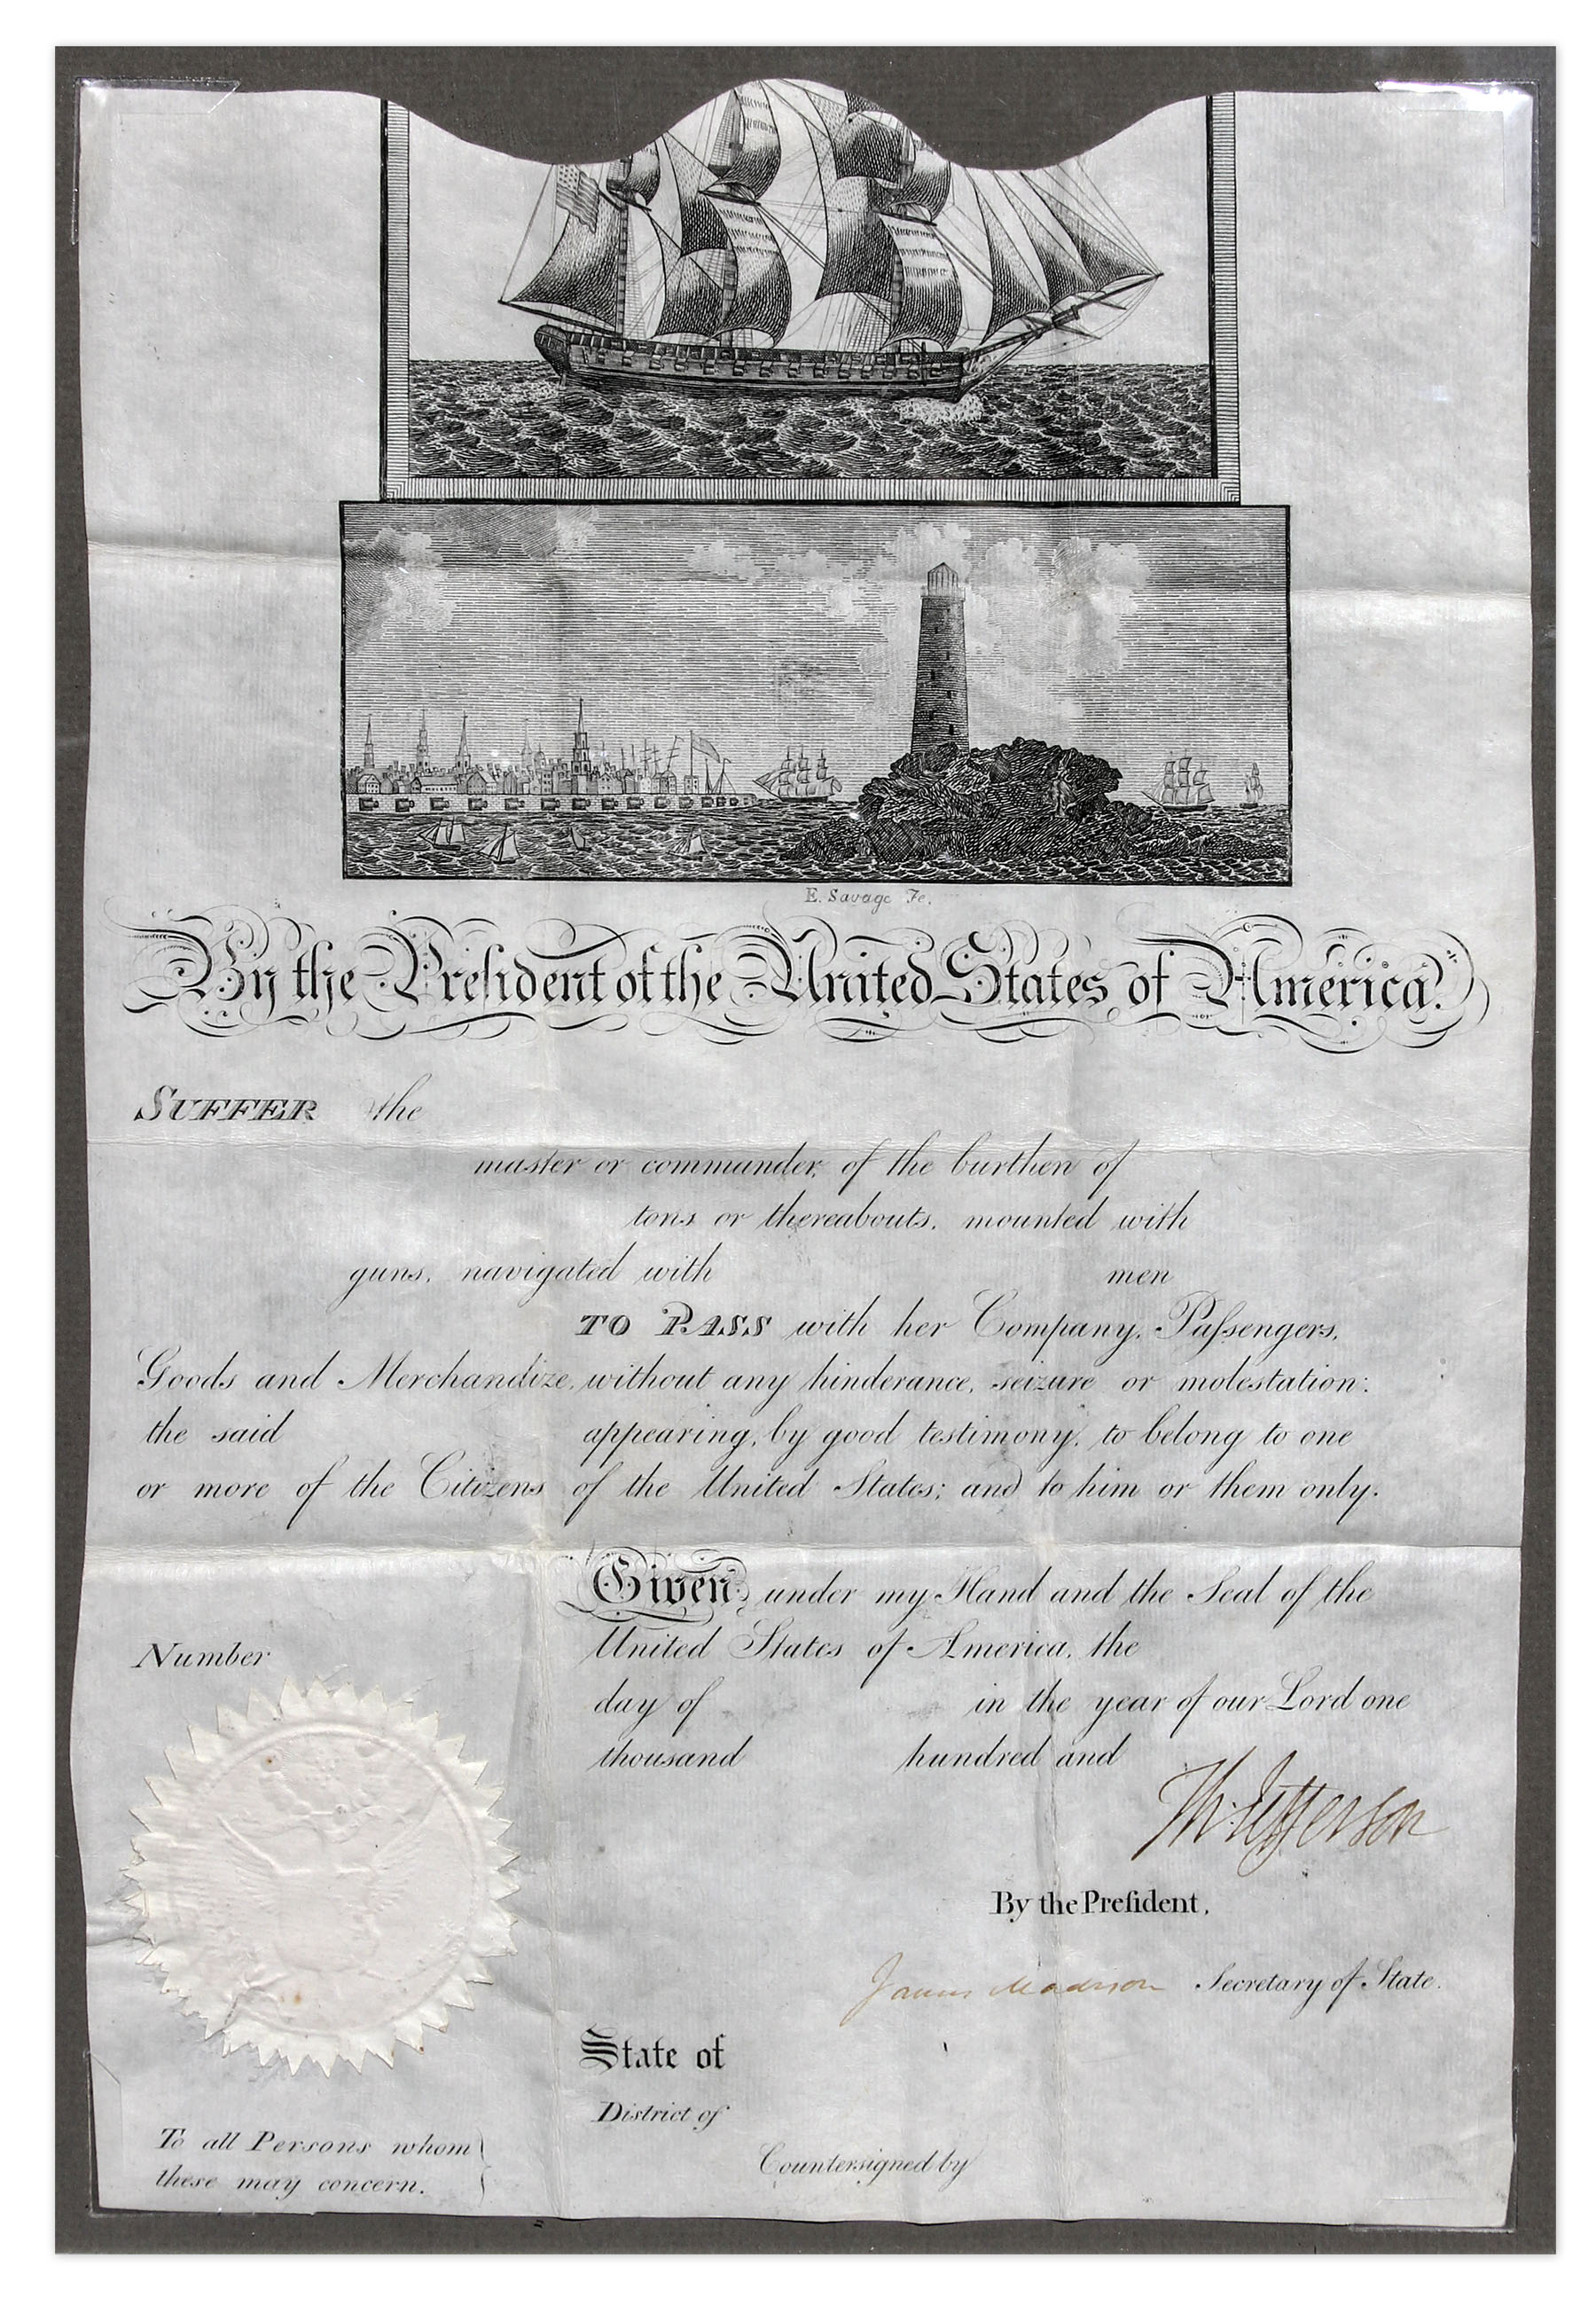 E. Savage Fe.
By the Preſident of the United States of America.
SUFFER the
master or commander, of the burthen of
tons or thereabouts, mounted with
guns, navigated with men
TO PASS with her Company, Paſsengers,
Goods and Merchandize, without any hinderance, seizure or molestation:
the said appearing, by good testimony, to belong to one
or more of the Citizens of the United States; and to him or them only.
Given under my Hand and the Seal of the
United States of America, the
Number
day of in the year of our Lord one
thousand hundred and
Th: Jefferson
By the Preſident,
James Madison Secretary of State.
State of
District of
To all Persons whom
these may concern.
Countersigned by